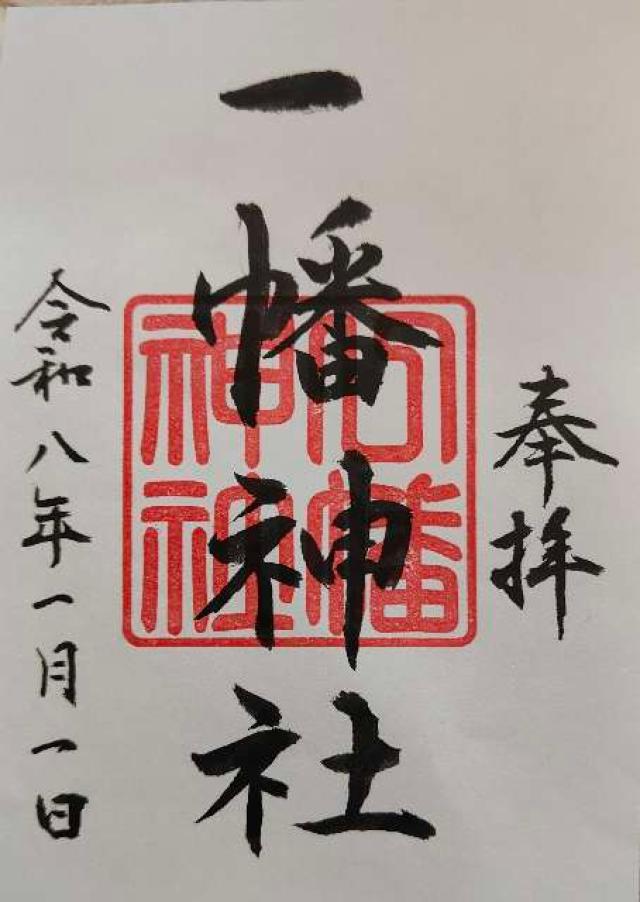 奉拝
一幡神社
幡
神社
令和八年一月一日